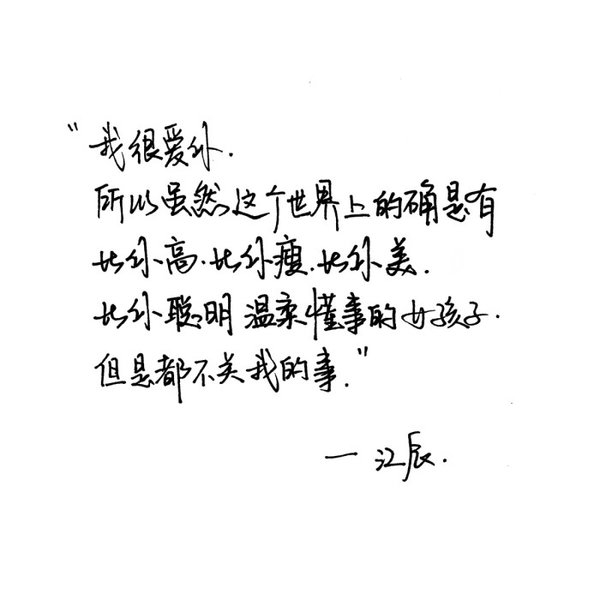 “我很爱你.
所以虽然这个世界上的确是有
比你高.比你瘦.比你美.
比你聪明温柔懂事的女孩子.
但是都不关我的事.”
— 江辰.